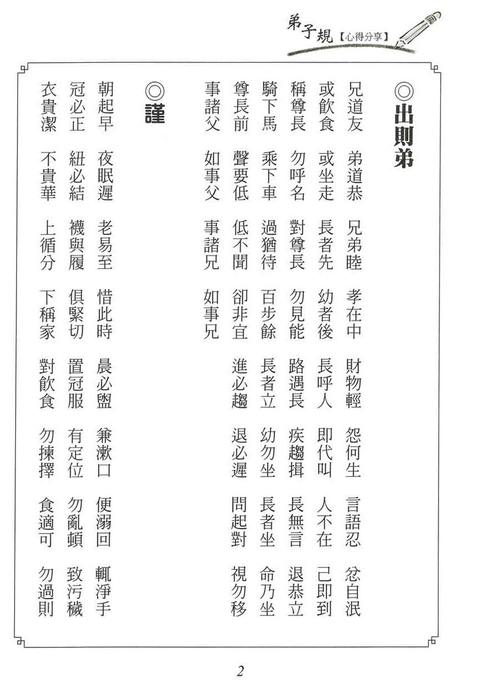 弟子規【心得分享】
◎出則弟
兄道友 弟道恭 兄弟睦 孝在中 財物輕 怨何生 言語忍 忿自泯
或飲食 或坐走 長者先 幼者後 長呼人 即代叫 人不在 己即到
稱尊長 勿呼名 對尊長 勿見能 路遇長 疾趨揖 長無言 退恭立
騎下馬 乘下車 過猶待 百步餘 長者立 幼勿坐 長者坐 命乃坐
尊長前 聲要低 低不聞 卻非宜 進必趨 退必遲 問起對 視勿移
事諸父 如事父 事諸兄 如事兄
◎謹
朝起早 夜眠遲 老易至 惜此時 晨必盥 兼漱口 便溺回 輒淨手
冠必正 紐必結 襪與履 俱緊切 置冠服 有定位 勿亂頓 致污穢
衣貴潔 不貴華 上循分 下稱家 對飲食 勿揀擇 食適可 勿過則
2